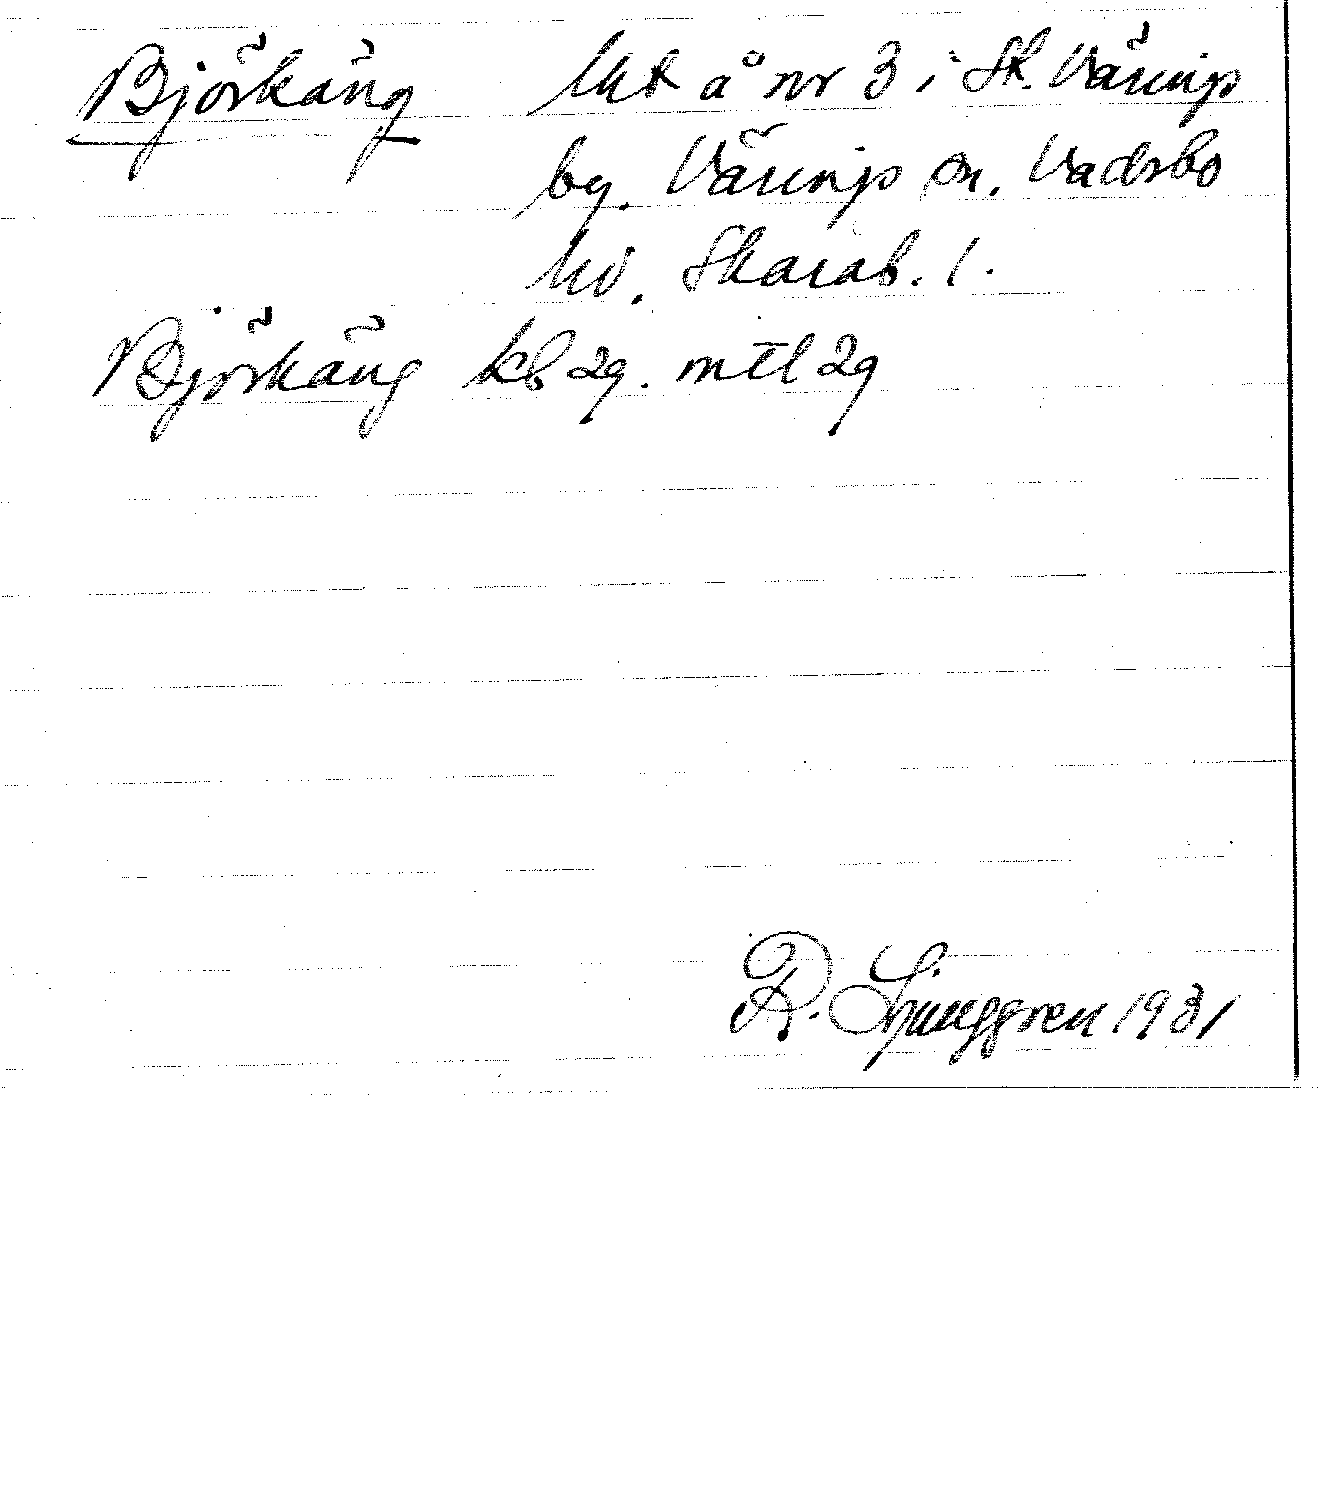 Björkäng lht å nr 3 i St. Värings
by. Värings sn. Vadsbo
hd. Skarab. l.
Björkäng kb 29. mtl 29
R. Ljunggren 1931